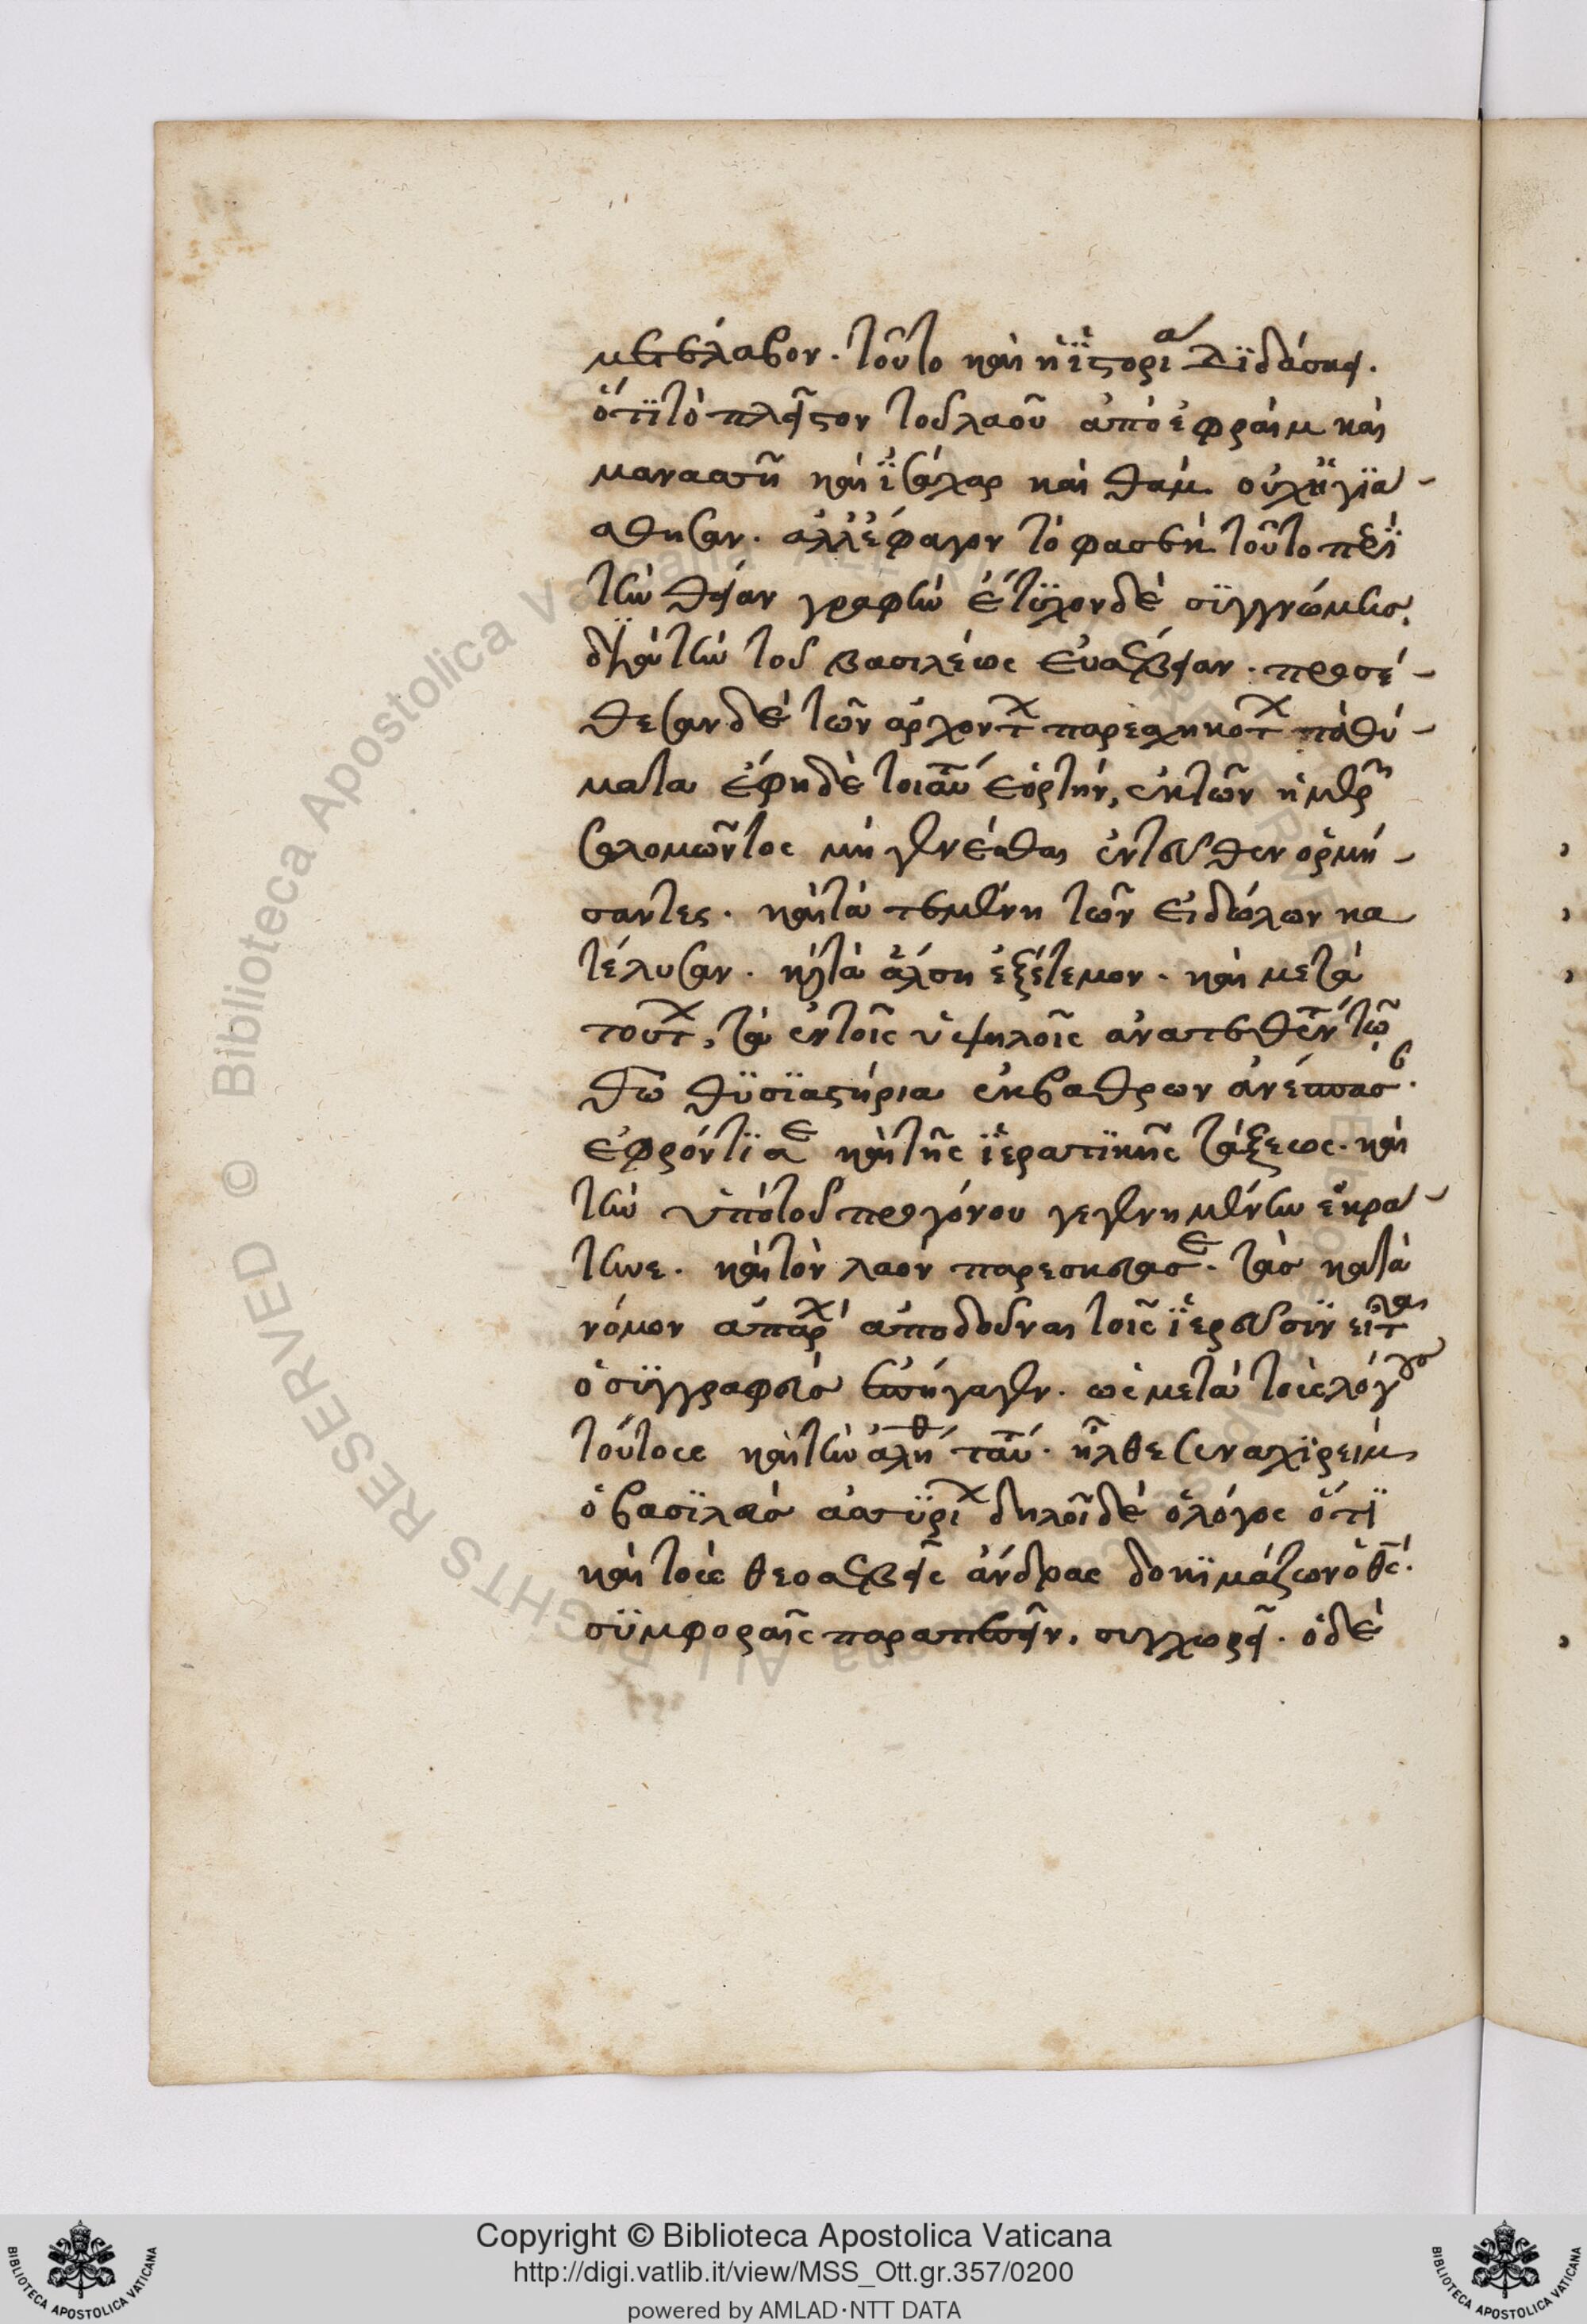 μετέλαβον. τοῦτο καὶ ἡ ἱστορία διδάσκει.
ὅτι τὸ πλεῖστον τοῦ λαοῦ ἀπὸ ἐφραὶμ καὶ
μανασσῆ καὶ ἰσάχαρ καὶ θαμ. οὐχ ἡγιά-
σθησαν. ἀλλ' ἔφαγον τὸ φασὲκ τοῦτο παρὰ
τὴν θείαν γραφὴν ἔτυχον δὲ συγγνώμης
διὰ τὴν τοῦ βασιλέως εὐσέβειαν. προσέ-
θεσαν δὲ τῶν ἀρχόντων παρεσχηκότων τὰ θύ-
ματα ἔφη δὲ τοιαύτην ἑορτήν, ἐκ τῶν ἡμερῶν
σαλομῶντος μὴ γενέσθαι ἐντεῦθεν ὁρμή-
σαντες. καὶ τὰ τεμένη τῶν εἰδώλων κα
τέλυσαν. καὶ τὰ ἄλση ἐξέτεμον. καὶ μετὰ
τούτων, τὰ ἐν τοῖς ὑψηλοῖς ἀνατεθέντα τῷ
θεῷ θυσιαστήρια ἐκ βάθρων ἀνέσπασε.
ἐφρόντισε καὶ τῆς ἱερατικῆς τάξεως. καὶ
τὴν ὑπὸ τοῦ προγόνου γεγενημένην ἐκρά-
τυνε. καὶ τὸν λαὸν παρεσκεύασε. τὰς κατὰ
νόμον ἀπαρχὰς ἀποδοῦναι τοῖς ἱερεῦσιν εἶτα
ὁ συγγραφεὺς ἐπήγαγεν. ὡς μετὰ τοὺς λόγους
τούτους καὶ τὴν ἀλήθειαν ταύτην. ἦλθε σεναχιρεὶμ
ὁ βασιλεὺς ἀσσυρίων δηλοῖ δὲ ὁ λόγος ὅτι
καὶ τοὺς θεοσεβεῖς ἄνδρας δοκιμάζων ὁ θς.
συμφοραῖς παραπεσεῖν, συγχωρεῖ. ὁ δὲ
Copyright © Biblioteca Apostolica Vaticana
http://digi.vatlib.it/view/MSS_Ott.gr.357/0200
powered by AMLAD·NTT DATA